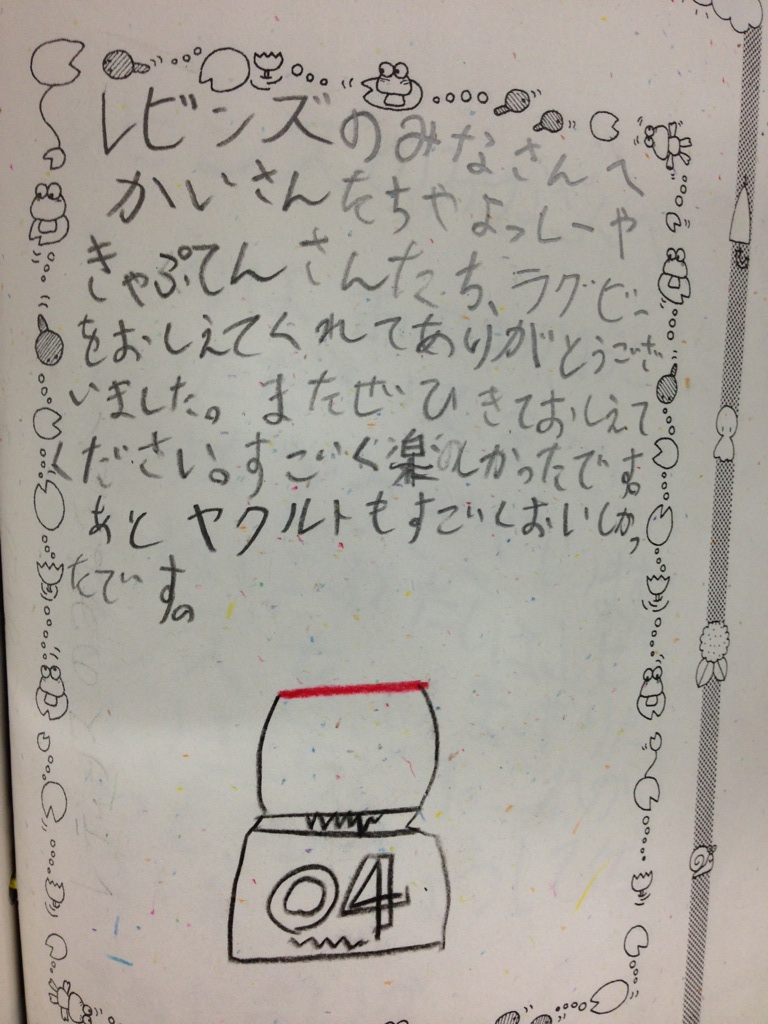 レビンズのみなさんへ
かいさんたちやよっしーや
きゃぷてんさんたち、ラグビー
をおしえてくれてありがとうござ
いました。またぜひきておしえて
ください。すごいく楽しかったです。
あとヤクルトもすごいくおいしかっ
たでいす。
04